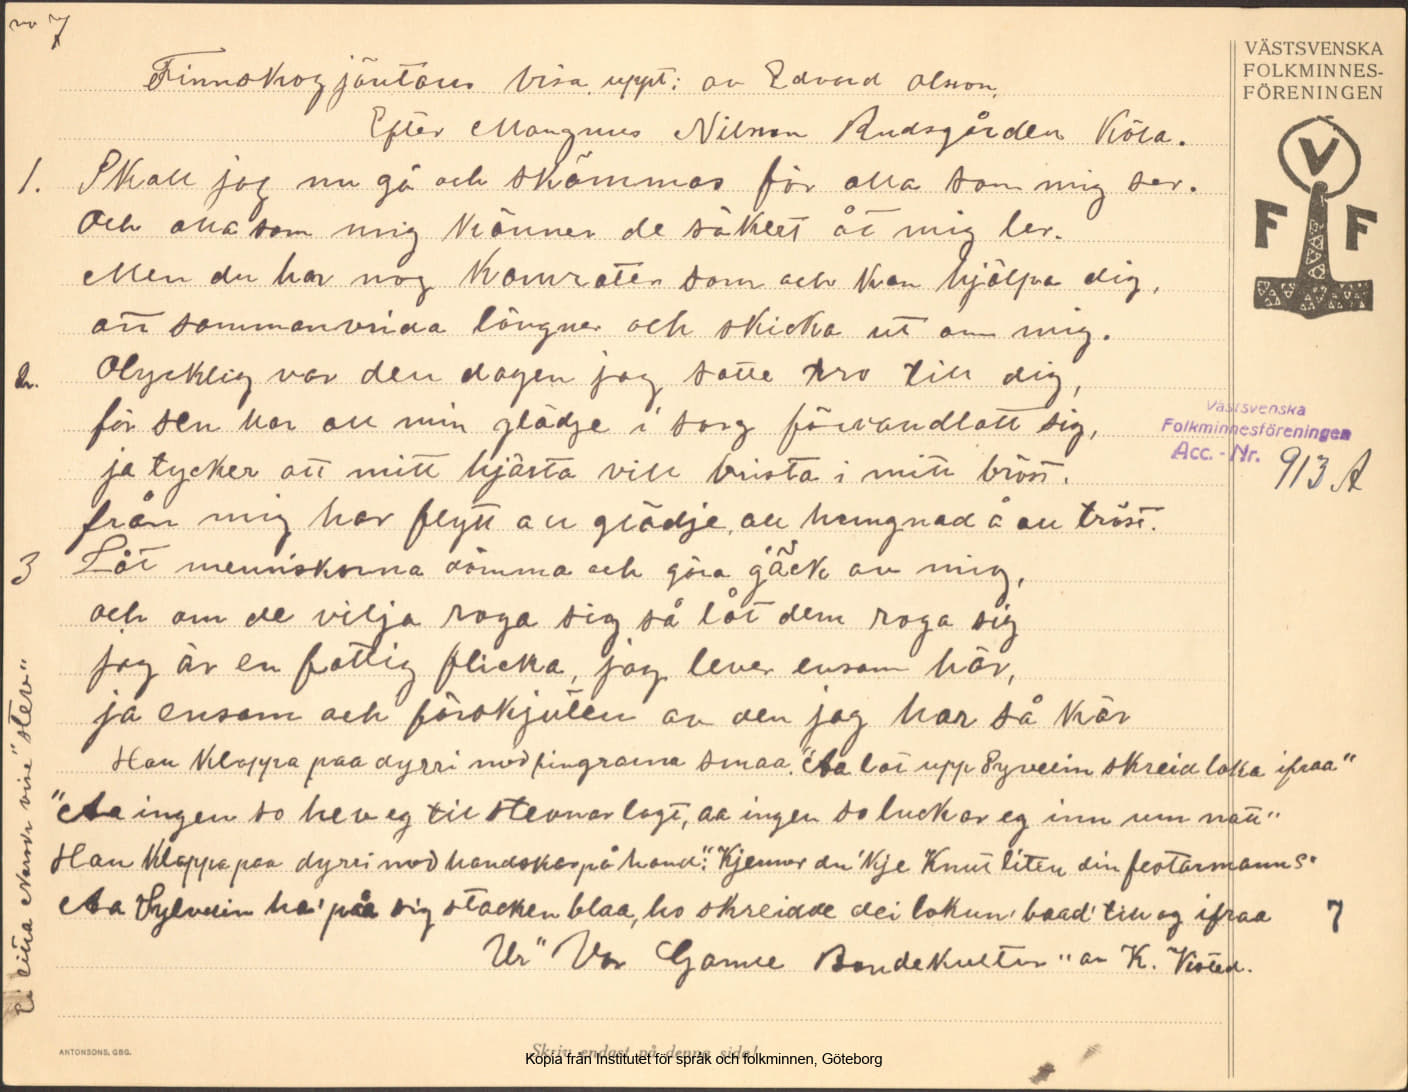 no 7
Finnskog jäntans visa uppt: av Edvard Olsson.
Efter Mangnus Nilsson Rudsgården Köla.
1. Skall jag nu gå och skämmas för alla som mig ser.
Och alla som mig känner de säkert åt mig ler.
Men du har nog kamrater som och kan hjälpa dig,
att sammanvrida längner och skicka ut om mig.
2. Olycklig var den dagen jag satte tro till dig,
för sen har all min glädje i sorg förvandlatt sig,
ja tycker att mitt hjärta vill brista i mitt bröst.
från mig har flytt all glädje, all hungnad å all tröst.
3 Låt menniskorna dömma och göra gäck av mig,
och om de vilja roga sig så låt dem roga sig
jag är en fattig flicka, jag lever ensam här,
ja ensam och förskjuten av den jag har så kär
Han klappa paa dyrri med fingrarna smaa. "Aa lat upp Syvelin skreid loka ifraa"
"Aa ingen so hev eg til stevnar lagt, aa ingen so luckar eg inn um natt"
Han klappa paa dyrei med handskar på hand: "Kjenner du 'kje Knut liten din festarmanns"
Aa Sylvelin ha' på sig stacken blaa, ho skreidde dei lokun' baad' till og ifraa
Ur "Vor Gamle Bondekultur" av K. Visted.
Ei lita Norsk vise "stev"
VÄSTSVENSKA
FOLKMINNES-
FÖRENINGEN
V
F F
Västsvenska
Folkminnesföreningen
Acc.-Nr. 913 A
7
ANTONSONS, GBG.
Skriv endast på denna sida!
Kopia från Institutet för språk och folkminnen, Göteborg